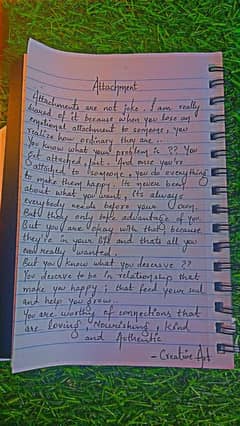 Attachment
Attachments are not joke. I am really
scared of it because when you lose an
emotional attachment to someone, you
realize how ordinary they are..
You know what your problem is ?? You
get attached, fast. And once you're
attached to someone, you do everything
to make them happy. Its never been
about what you want, its always
everybody needs before your own.
But they only take advantage of you.
But you are okay with that, because
they're in your life and thats all you
ever really wanted.
But you know what you deserve ??
You deserve to be in relationship that
make you happy ; that feed your soul
and help you grow..
You are worthy of connections that
are loving, Nourishing, kind
and Authentic
- Creative Art